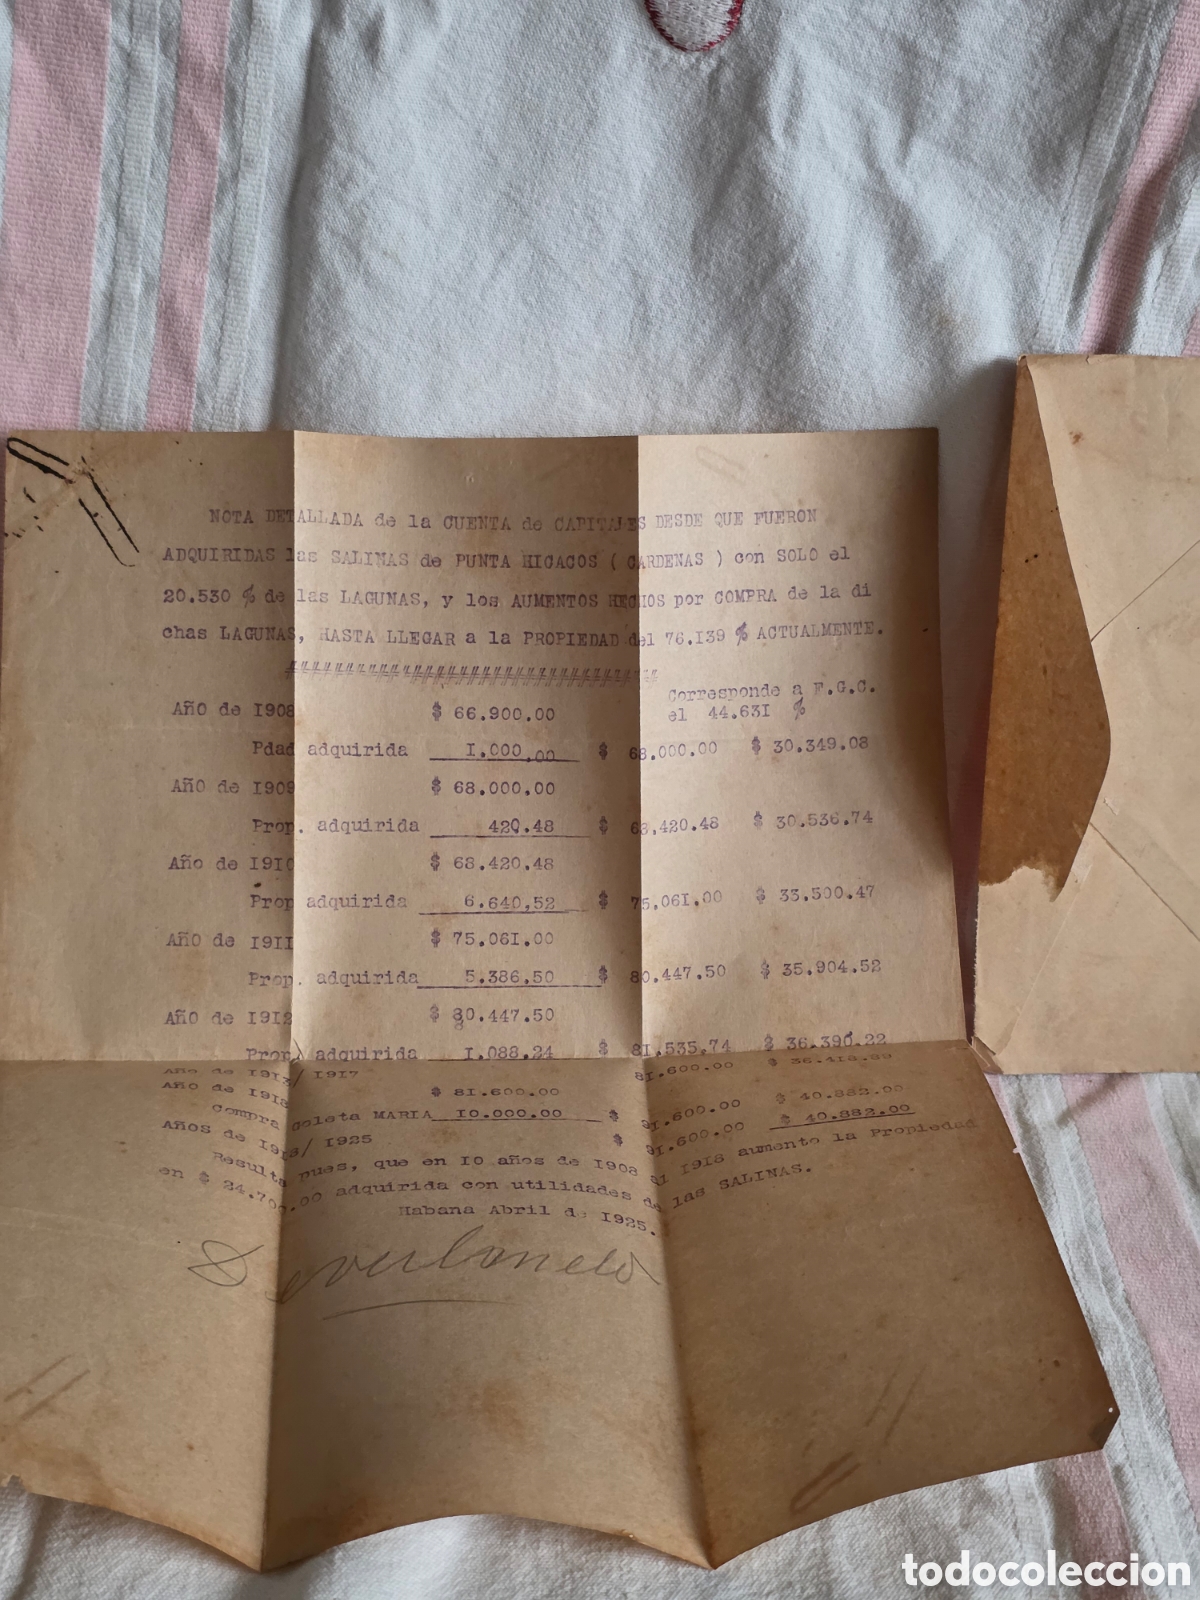 NOTA DETALLADA de la CUENTA de CAPITALES DESDE QUE FUERON
ADQUIRIDAS las SALINAS de PUNTA HICACOS ( CARDENAS ) con SOLO el
20.530 % de las LAGUNAS, y los AUMENTOS HECHOS por COMPRA de la di
chas LAGUNAS, HASTA LLEGAR a la PROPIEDAD del 76.I39 % ACTUALMENTE.
Corresponde a F.G.C.
el 44.63I %
Año de I908 $ 66.900.00
Pdad adquirida I.000.00 $ 68.000.00 $ 30.349.08
Año de I909 $ 68.000.00
Prop. adquirida 420.48 $ 68,420.48 $ 30.536.74
Año de I9I0 $ 68.420.48
Prop adquirida 6.640,52 $ 75,06I.00 $ 33,500.47
Año de I9II $ 75,06I.00
Prop. adquirida 5,386,50 $ 80,447.50 $ 35,904.52
Año de I9I2 $ 80.447.50
Prop. adquirida I.088.24 $ 8I,535,74 $ 36,390.22
Año de I9I3/ I9I7 8I.600.00 $ 36.418.89
Año de I9I8 $ 8I.600.00
Compra Goleta MARIA I0.000.00 $ 9I.600.00 $ 40.882.00
Años de I9I8/ I925 $ 9I.600.00 $ 40.882.00
Resulta pues, que en I0 años de I908 al I9I8 aumento la Propiedad
en $ 24.700.00 adquirida con utilidades de las SALINAS.
Habana Abril de I925.
todocoleccion